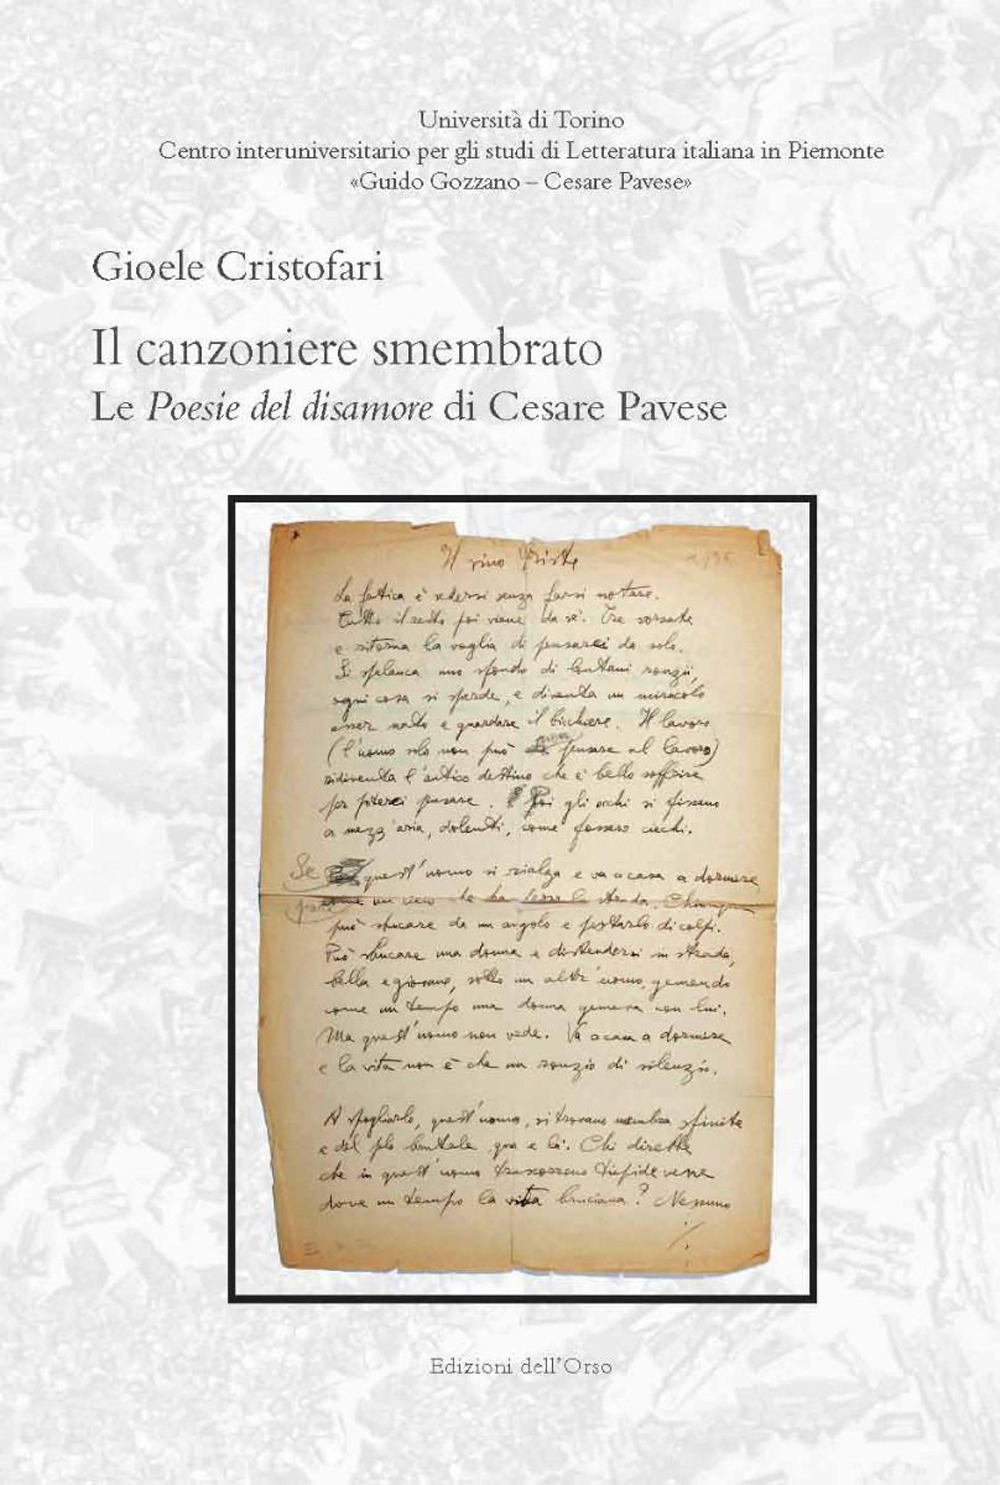 Università di Torino
Centro interuniversitario per gli studi di Letteratura italiana in Piemonte
«Guido Gozzano – Cesare Pavese»
Gioele Cristofari
Il canzoniere smembrato
Le Poesie del disamore di Cesare Pavese
Il vino triste
La fatica è sedersi senza farsi notare.
Tutto il resto poi viene da sè. Tre sorsate
e ritorna la voglia di pensarci da solo.
Si spalanca uno sfondo di lontani ronzii,
ogni cosa si sperde, e diventa un miracolo
esser nato e guardare il bicchiere. Il lavoro
(l'uomo solo non può pensare al lavoro)
ridiventa l'antico destino che è bello soffrire
per poterci pensare. Poi gli occhi si fissano
a mezz'aria, dolenti, come fossero ciechi.
Se quest'uomo si rialza e va a casa a dormire
pare un cieco che ha perso la strada. Chiunque
può sbucare da un angolo e pestarlo di colpi.
Può sbucare una donna e distendersi in strada,
bella e giovane, sotto un altr'uomo, gemendo
come un tempo una donna gemeva con lui.
Ma quest'uomo non vede. Va a casa a dormire
e la vita non è che un ronzio di silenzio.
A spogliarlo, quest'uomo, si trovano membra sfinite
e del pelo brutale, qua e là. Chi direbbe
che in quest'uomo trascorrono tiepide vene
dove un tempo la vita bruciava? Nessuno
./.
Edizioni dell'Orso